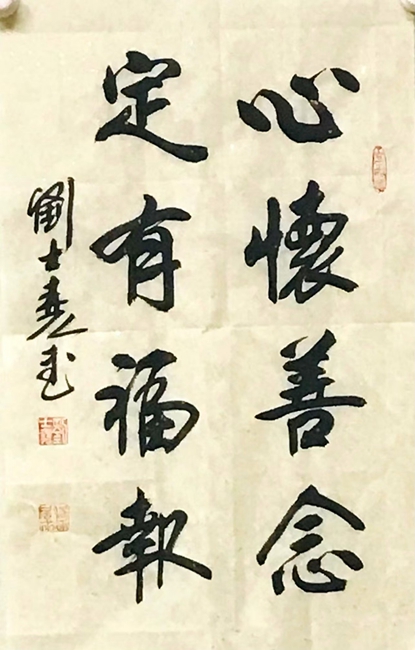 心懷善念
定有福報
劉士堯書